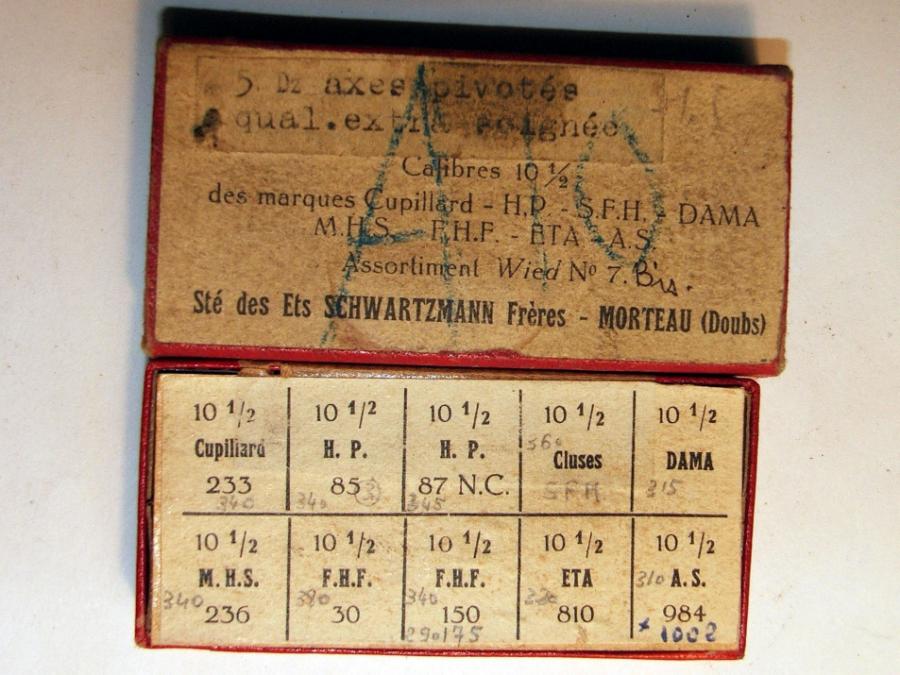 5 Dz axes pivotés
qual.extra soignée
Calibres 10 1/2
des marques Cupillard - H.P. - S.F.H. - DAMA
M.H.S. - F.H.F. - ETA - A.S.
Assortiment Wied Nº 7. Bis.
Sté des Ets SCHWARTZMANN Frères - MORTEAU (Doubs)
10 1/2 10 1/2 10 1/2 10 1/2 10 1/2
Cupillard H. P. H. P. Cluses DAMA
233 85 87 N.C. SFH 315
340 340 345
10 1/2 10 1/2 10 1/2 10 1/2 10 1/2
M.H.S. F.H.F. F.H.F. ETA 310 A.S.
340 236 30 340 150 810 984
290175 + 1002